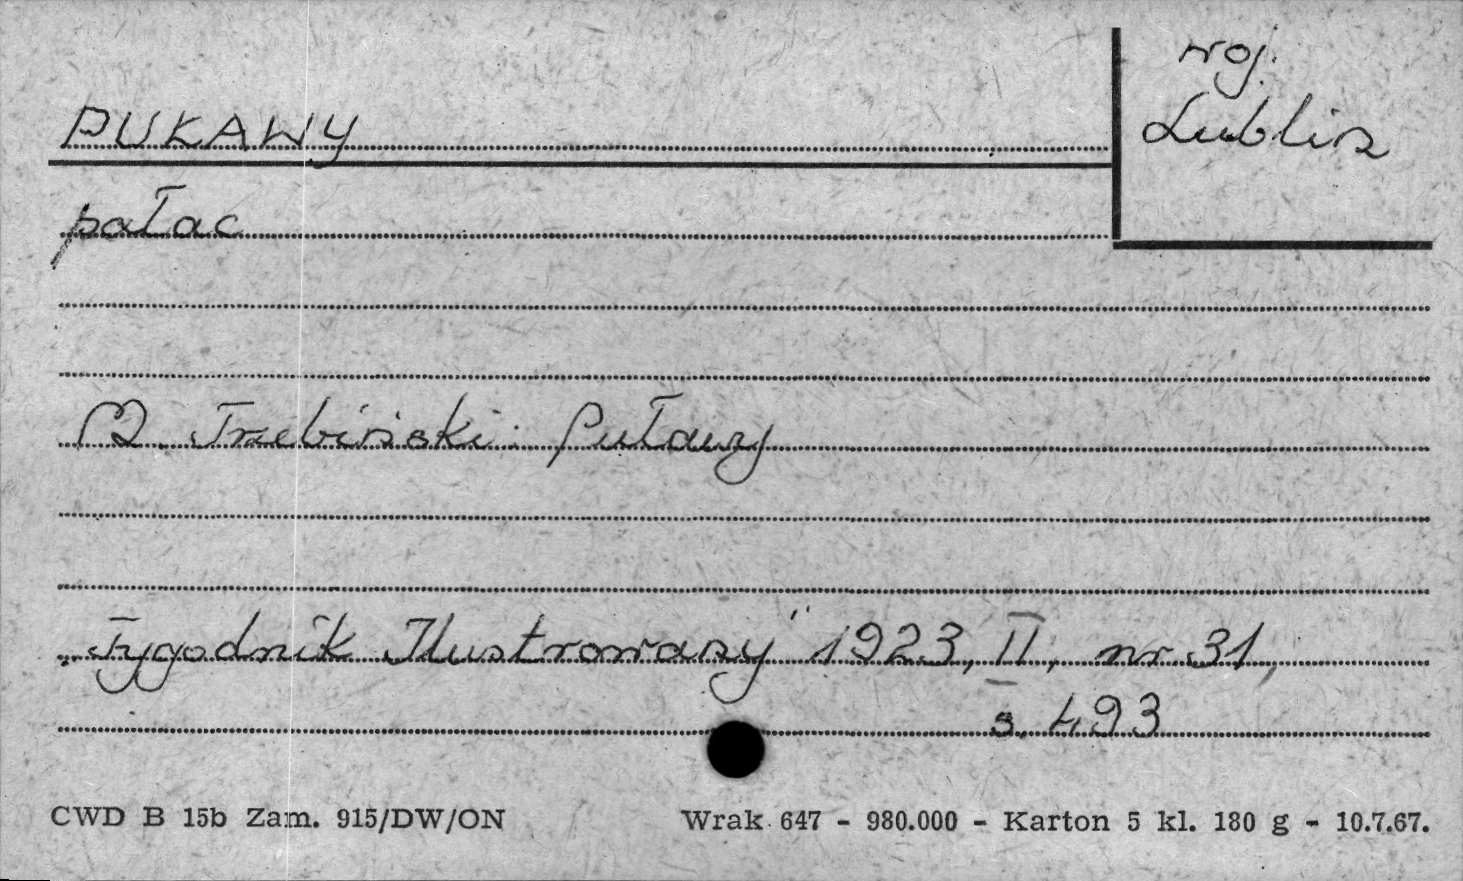 PUŁAWY
woj.
Lublin
pałac
M. Trzebiński: Puławy
„Tygodnik Ilustrowany" 1923, II, nr 31,
s. 493
CWD B 15b Zam. 915/DW/ON
Wrak 647 - 980.000 - Karton 5 kl. 180 g - 10.7.67.